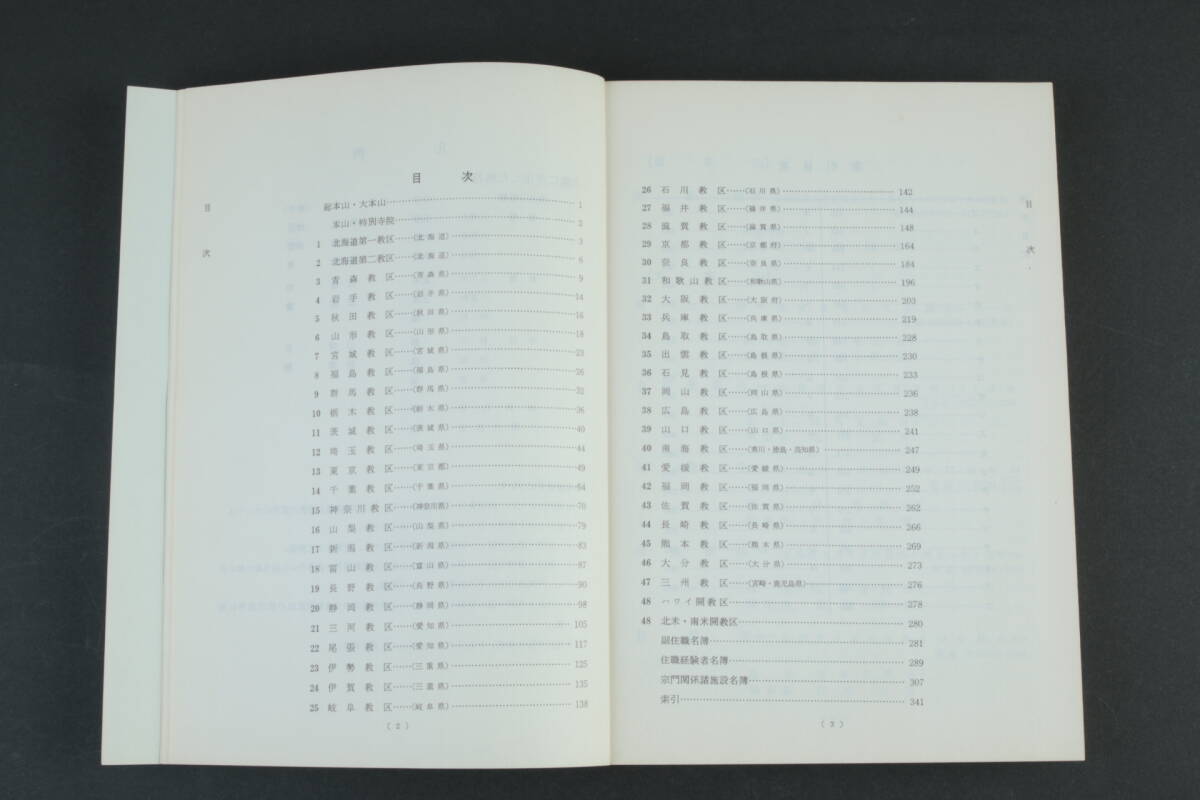 目次
目次
総本山・大本山……1
本山・特別寺院……2
1 北海道第一教区……(北海道)……3
2 北海道第二教区……(北海道)……6
3 青森教区……(青森県)……9
4 岩手教区……(岩手県)……14
5 秋田教区……(秋田県)……16
6 山形教区……(山形県)……18
7 宮城教区……(宮城県)……23
8 福島教区……(福島県)……26
9 群馬教区……(群馬県)……32
10 栃木教区……(栃木県)……36
11 茨城教区……(茨城県)……40
12 埼玉教区……(埼玉県)……44
13 東京教区……(東京都)……49
14 千葉教区……(千葉県)……64
15 神奈川教区……(神奈川県)……70
16 山梨教区……(山梨県)……79
17 新潟教区……(新潟県)……83
18 富山教区……(富山県)……87
19 長野教区……(長野県)……90
20 静岡教区……(静岡県)……98
21 三河教区……(愛知県)……105
22 尾張教区……(愛知県)……117
23 伊勢教区……(三重県)……125
24 伊賀教区……(三重県)……135
25 岐阜教区……(岐阜県)……138
(2)
目次
26 石川教区……(石川県)……142
27 福井教区……(福井県)……144
28 滋賀教区……(滋賀県)……148
29 京都教区……(京都府)……164
30 奈良教区……(奈良県)……184
31 和歌山教区……(和歌山県)……196
32 大阪教区……(大阪府)……203
33 兵庫教区……(兵庫県)……219
34 鳥取教区……(鳥取県)……228
35 出雲教区……(島根県)……230
36 石見教区……(島根県)……233
37 岡山教区……(岡山県)……236
38 広島教区……(広島県)……238
39 山口教区……(山口県)……241
40 南海教区……(香川・徳島・高知県)……247
41 愛媛教区……(愛媛県)……249
42 福岡教区……(福岡県)……252
43 佐賀教区……(佐賀県)……262
44 長崎教区……(長崎県)……266
45 熊本教区……(熊本県)……269
46 大分教区……(大分県)……273
47 三州教区……(宮崎・鹿児島県)……276
48 ハワイ開教区……278
48 北米・南米開教区……280
副住職名簿……281
住職経験者名簿……289
宗門関係諸施設名簿……307
索引……341
(3)